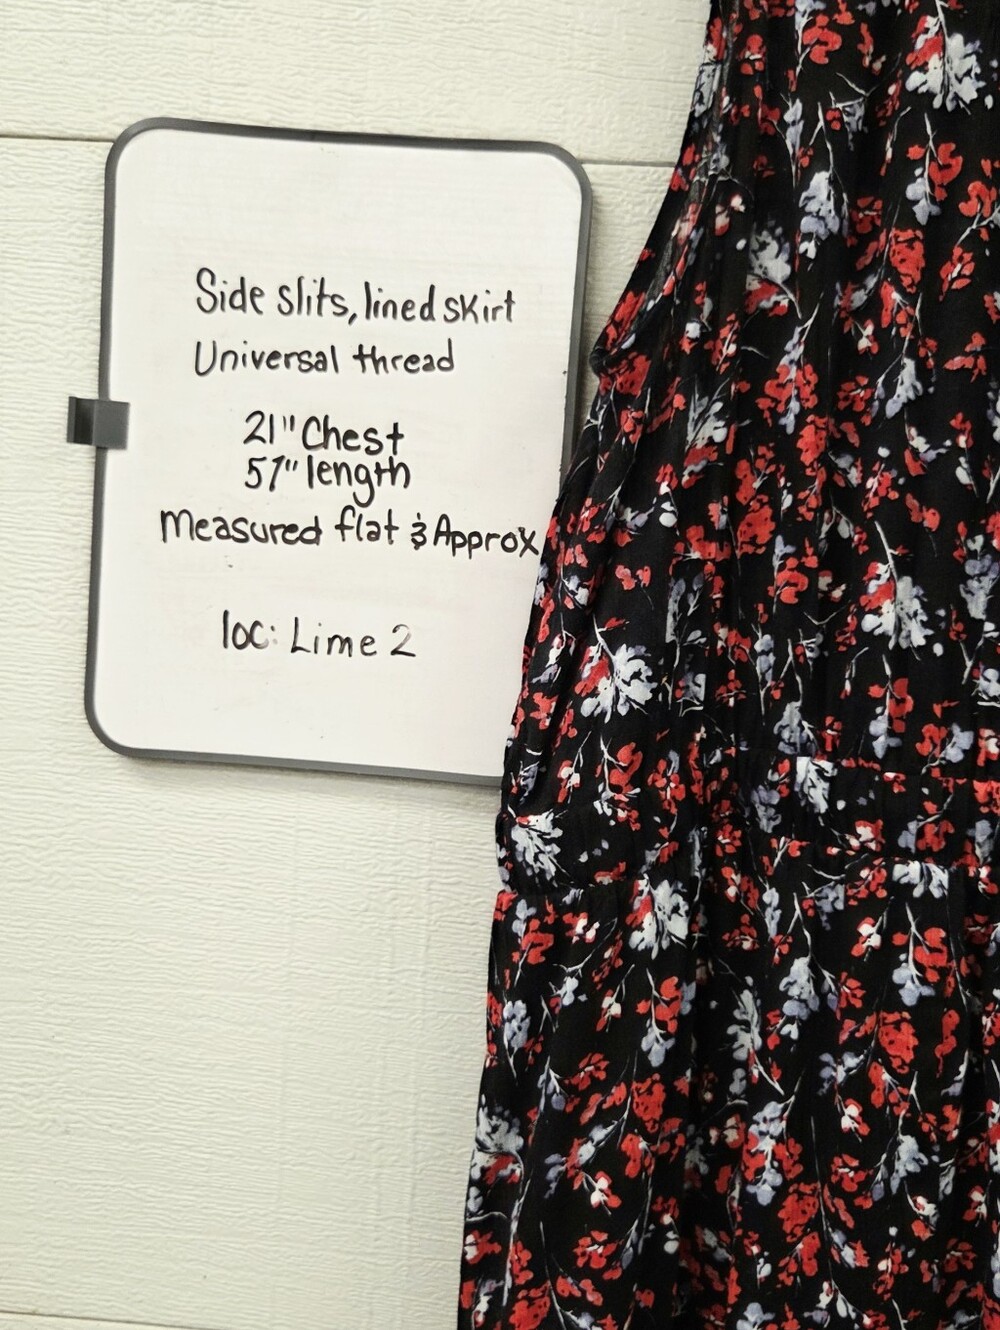 Side slits, lined skirt
Universal thread
21" Chest
51" length
Measured flat & Approx
loc: Lime 2